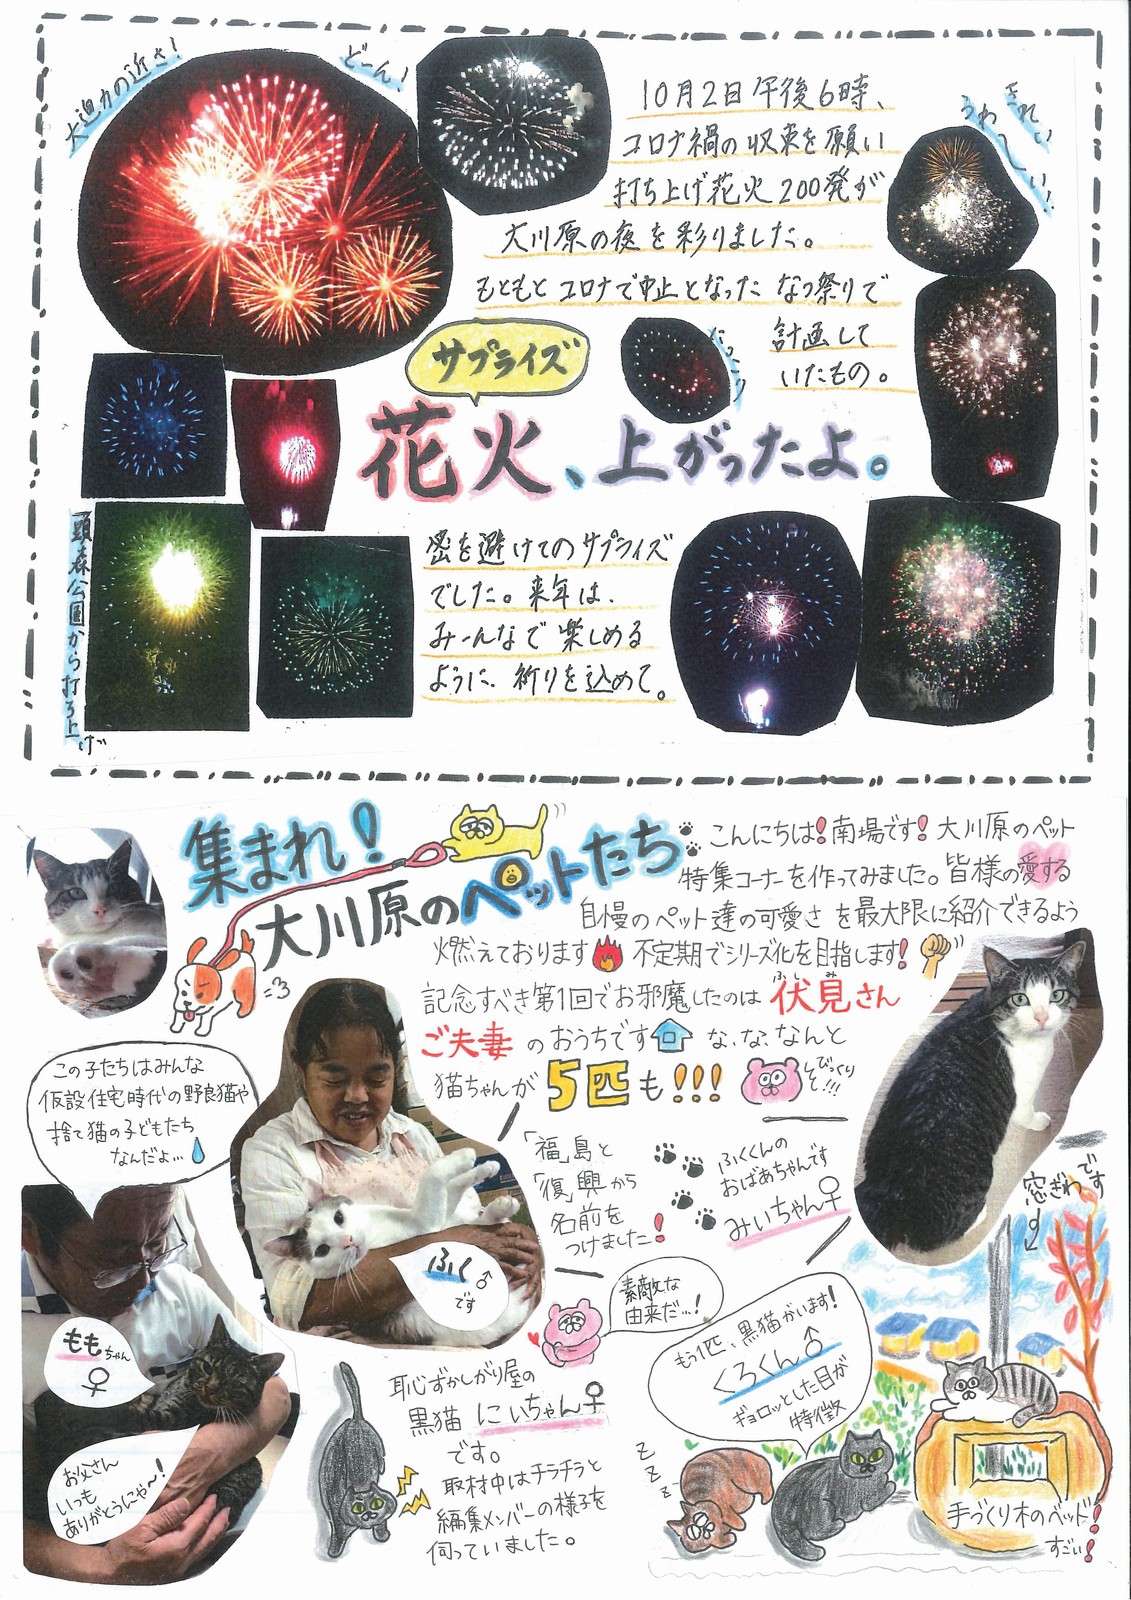 大迫力の近さ!
どーん!
10月2日午後6時、
コロナ禍の収束を願い
打ち上げ花火200発が
大川原の夜を彩りました。
もともとコロナで中止となったなつ祭りで
計画して
いたもの。
うわ〜
きれい
サプライズ
花火、上がったよ。
密を避けてのサプライズ
でした。来年は、
みーんなで楽しめる
ように、祈りを込めて。
森公園から打ち上げ
集まれ!
大川原のペットたち
こんにちは!南場です!大川原のペット
特集コーナーを作ってみました。皆様の愛する
自慢のペット達の可愛さを最大限に紹介できるよう
燃えております 不定期でシリーズ化を目指します!
記念すべき第1回でお邪魔したのは伏見さん
ふしみ
ご夫妻のおうちです な、な、なんと
猫ちゃんが5匹も!!!
びっくり
この子たちはみんな
仮設住宅時代の野良猫や
捨て猫の子どもたち
なんだよ…
「福」島と
「復」興から
名前を
つけました!
ふくくんの
おばあちゃんです
みいちゃん♀
窓ぎわです
ふく♂
です
素敵な
由来だ…!
ももちゃん
♀
お父さん
いつも
ありがとうにゃ〜!
恥ずかしがり屋の
黒猫 にいちゃん♀
です。
取材中はチラチラと
編集メンバーの様子を
伺っていました。
もう1匹、黒猫がいます!
くろくん♂
ギョロッとした目が
特徴
z z z
手づくり木のベッド!
すごい!